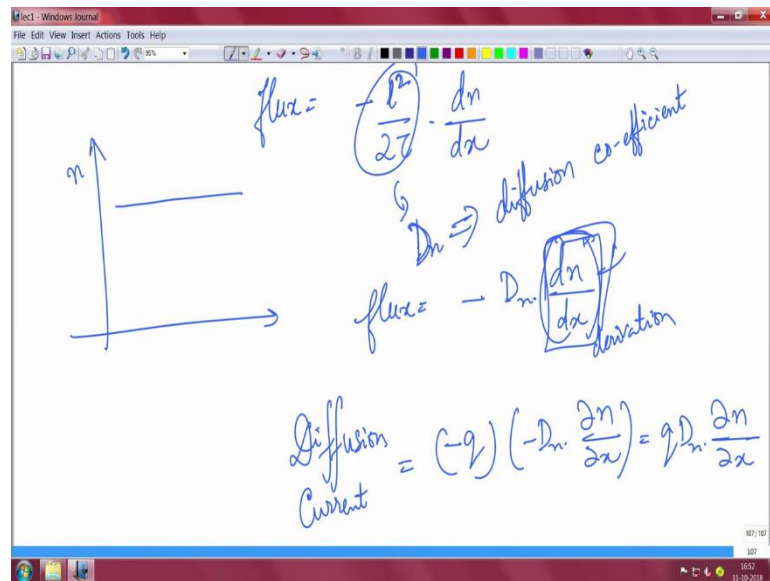 lec1 - Windows Journal
File Edit View Insert Actions Tools Help
flux = - l²/2τ · dn/dx
n
Dn ⇒ diffusion co-efficient
flux = - Dn. dn/dx
derivation
Diffusion Current = (-q) (-Dn. ∂n/∂x) = qDn. ∂n/∂x
107/107
107
16:52
31-10-2018